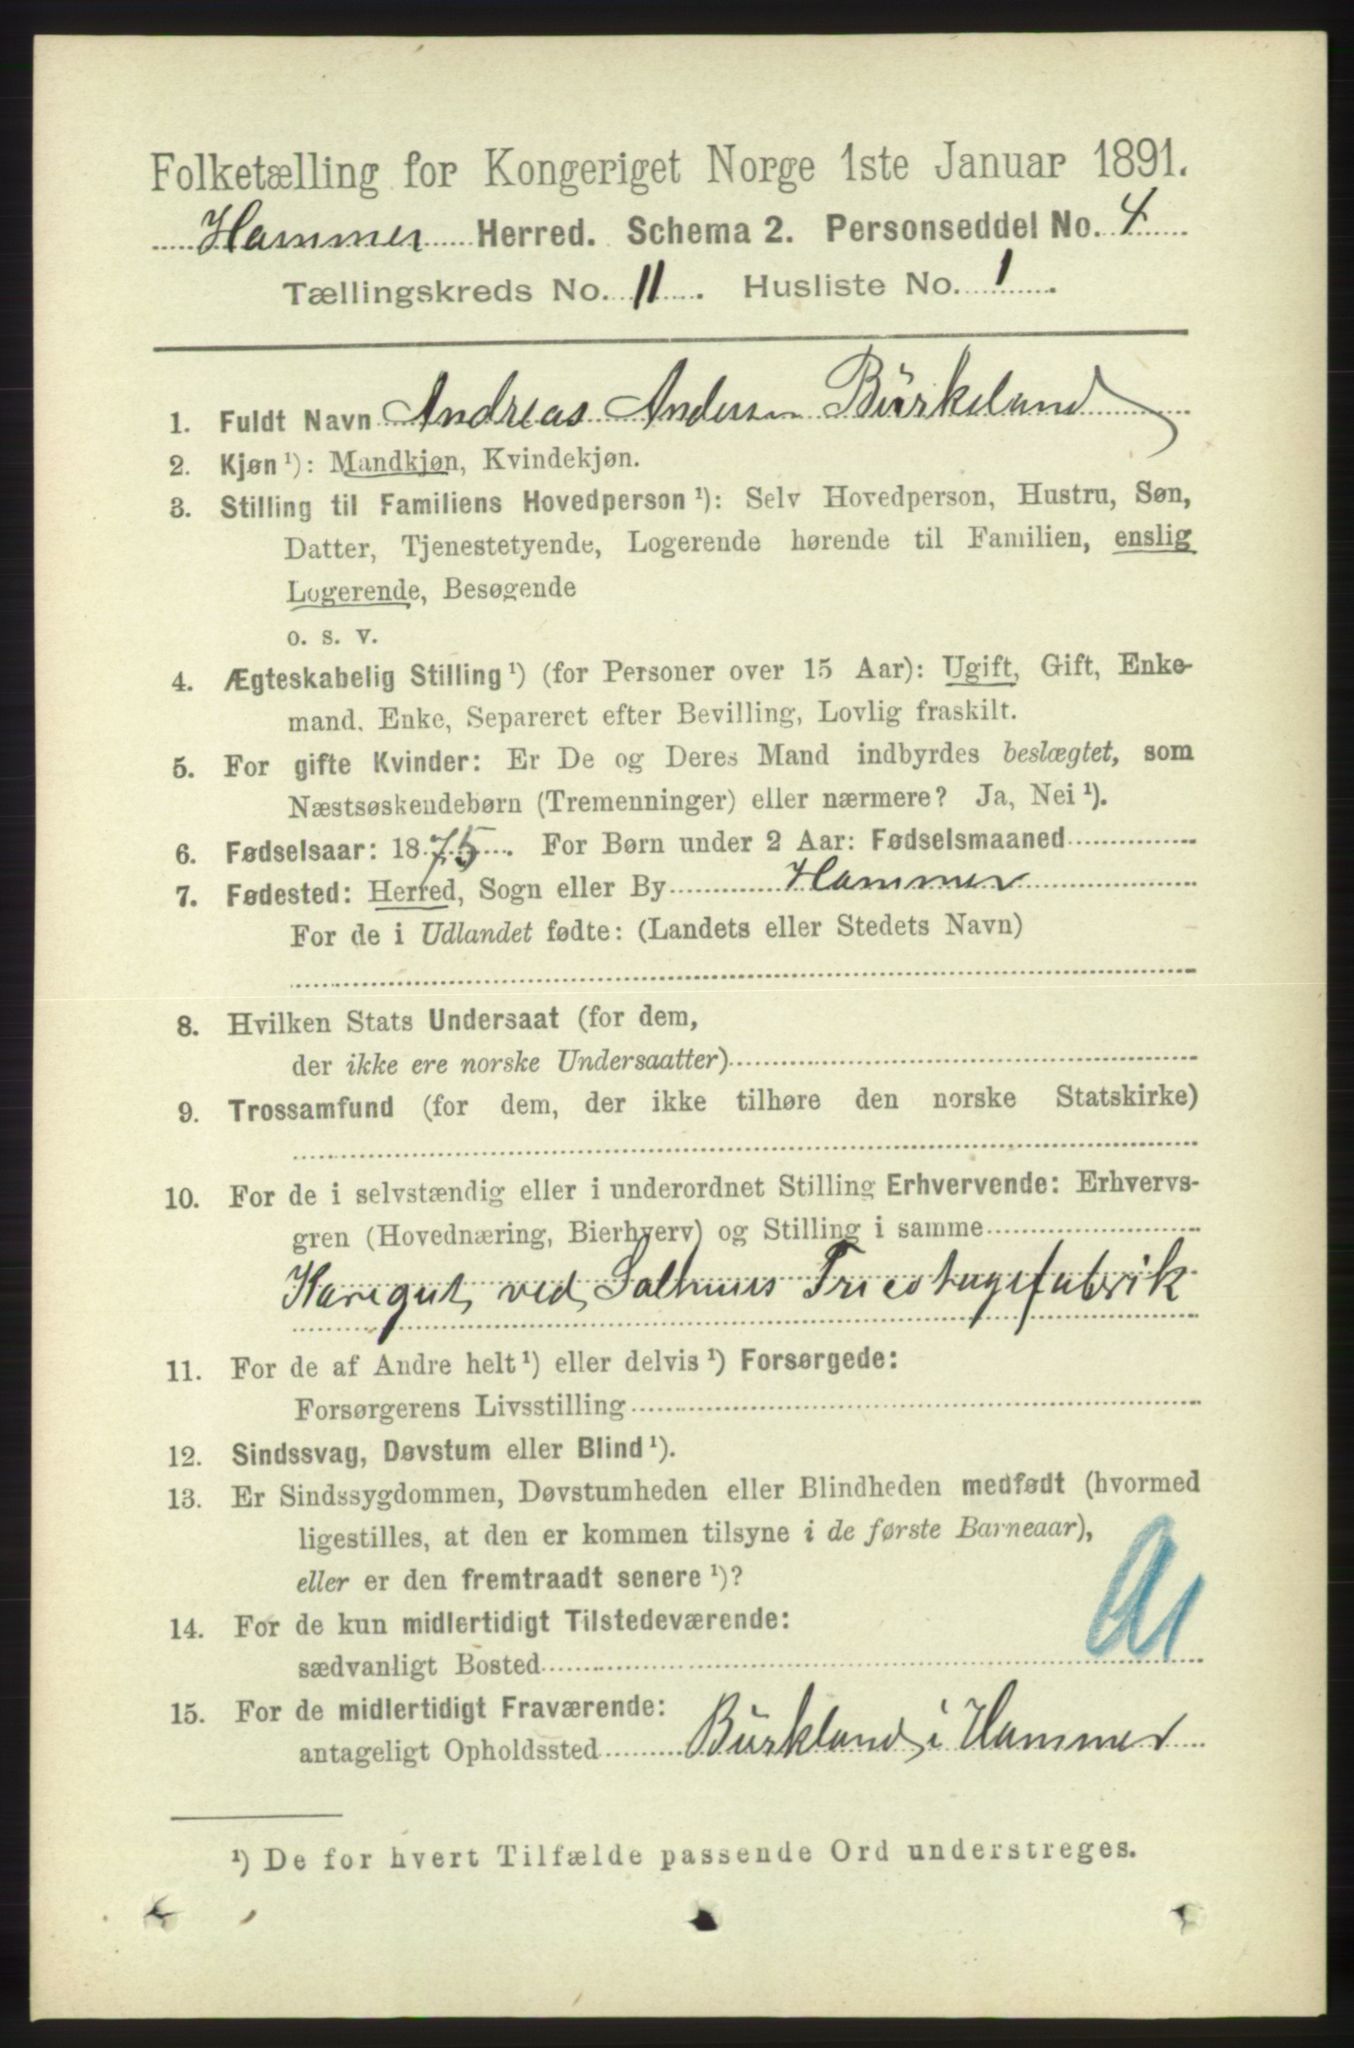 Folketælling for Kongeriget Norge 1ste Januar 1891.
Hammer Herred. Schema 2. Personseddel No. 4
Tællingskreds No. 11. Husliste No. 1.
1. Fuldt Navn Andreas Andersen Bürkeland
2. Kjøn ¹): Mandkjøn, Kvindekjøn.
3. Stilling til Familiens Hovedperson ¹): Selv Hovedperson, Hustru, Søn,
Datter, Tjenestetyende, Logerende hørende til Familien, enslig
Logerende, Besøgende
o. s. v.
4. Ægteskabelig Stilling ¹) (for Personer over 15 Aar): Ugift, Gift, Enke-
mand, Enke, Separeret efter Bevilling, Lovlig fraskilt.
5. For gifte Kvinder: Er De og Deres Mand indbyrdes beslægtet, som
Næstsøskendebørn (Tremenninger) eller nærmere? Ja, Nei ¹).
6. Fødselsaar: 1875. For Børn under 2 Aar: Fødselsmaaned
7. Fødested: Herred, Sogn eller By Hammer
For de i Udlandet fødte: (Landets eller Stedets Navn)
8. Hvilken Stats Undersaat (for dem,
der ikke ere norske Undersaatter)
9. Trossamfund (for dem, der ikke tilhøre den norske Statskirke)
10. For de i selvstændig eller i underordnet Stilling Erhvervende: Erhvervs-
gren (Hovednæring, Bierhverv) og Stilling i samme
ved Salhus Tricotagefabrik
11. For de af Andre helt ¹) eller delvis ¹) Forsørgede:
Forsørgerens Livsstilling
12. Sindssvag, Døvstum eller Blind ¹).
13. Er Sindssygdommen, Døvstumheden eller Blindheden medfødt (hvormed
ligestilles, at den er kommen tilsyne i de første Barneaar),
eller er den fremtraadt senere ¹)?
14. For de kun midlertidigt Tilstedeværende:
sædvanligt Bosted
15. For de midlertidigt Fraværende:
antageligt Opholdssted Bürkland i Hammer
¹) De for hvert Tilfælde passende Ord understreges.